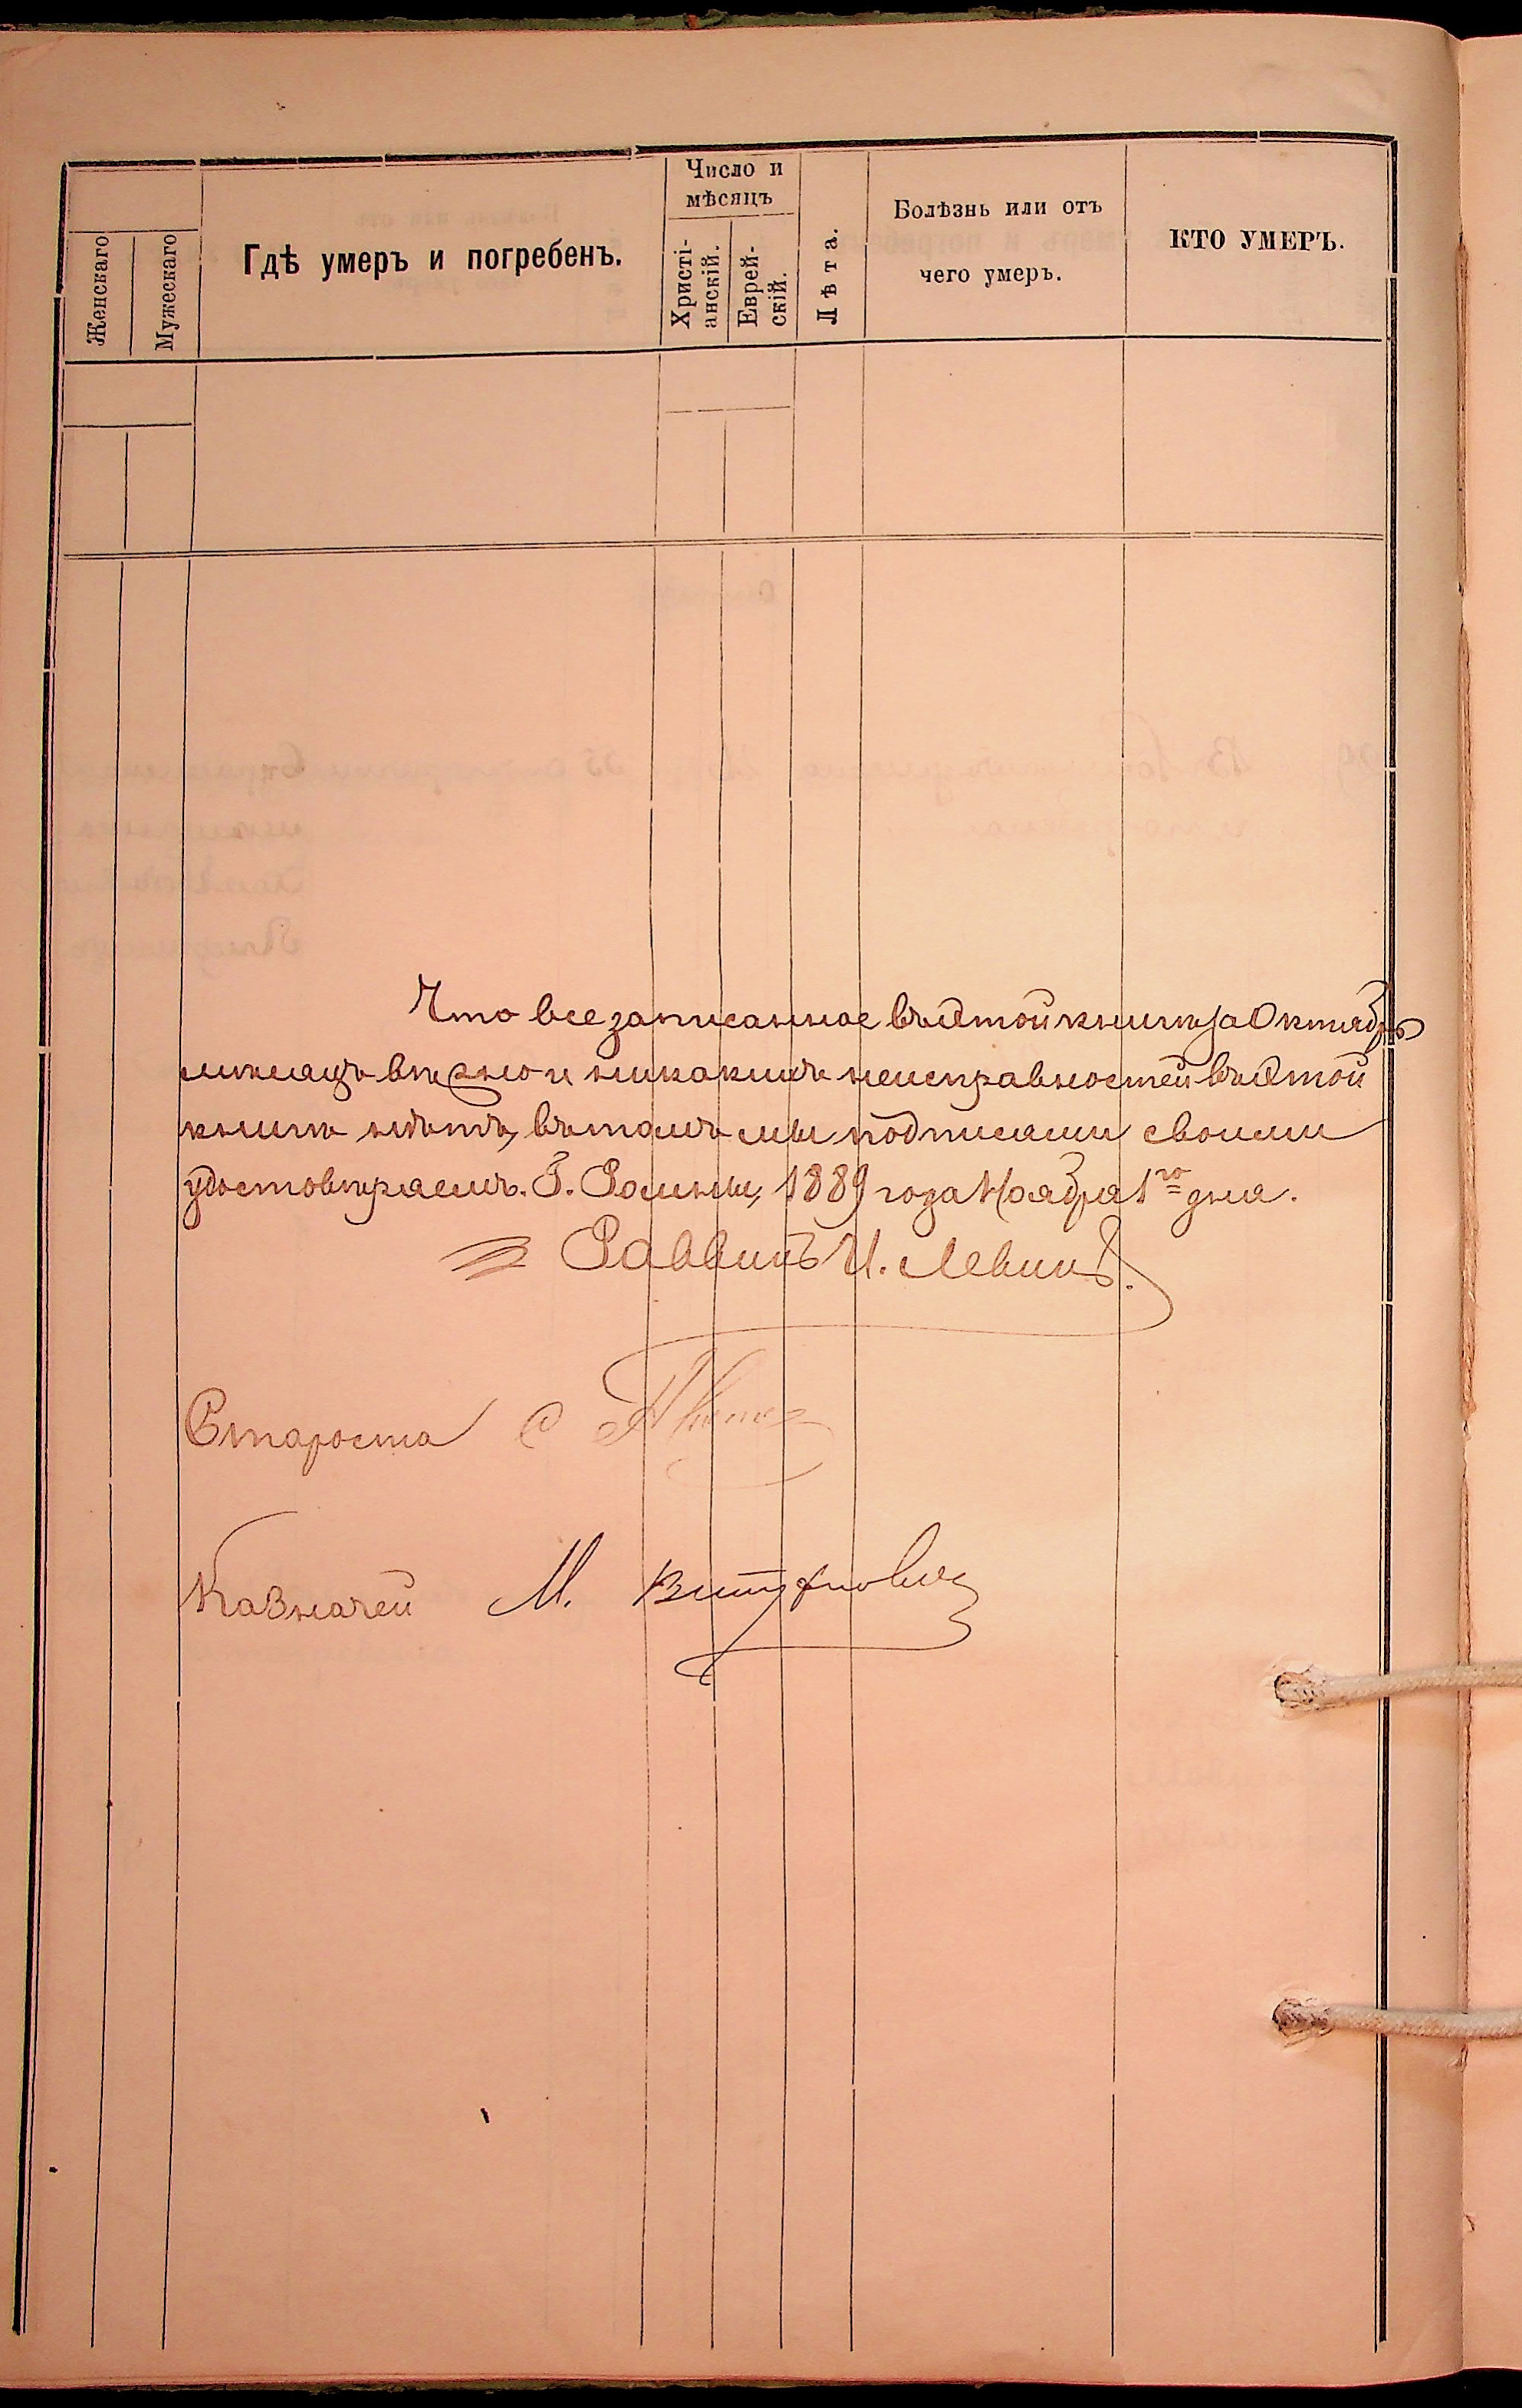 Женскаго
Мужескаго
Гдѣ умеръ и погребенъ.
Число и
мѣсяцъ
Христі-
анскій.
Еврей-
скій.
Лѣта.
Болѣзнь или отъ
чего умеръ.
КТО УМЕРЪ.
Что все записанное въ этой книгѣ за Октябрь
мѣсяцъ вѣрно и никакихъ неисправностей въ этой
книгѣ нѣтъ, въ томъ мы подписями своими
удостовѣряемъ. Г. Ромны, 1889 года Ноября 1го дня.
Раввинъ И. Левинъ.
Староста С
Казначей М.